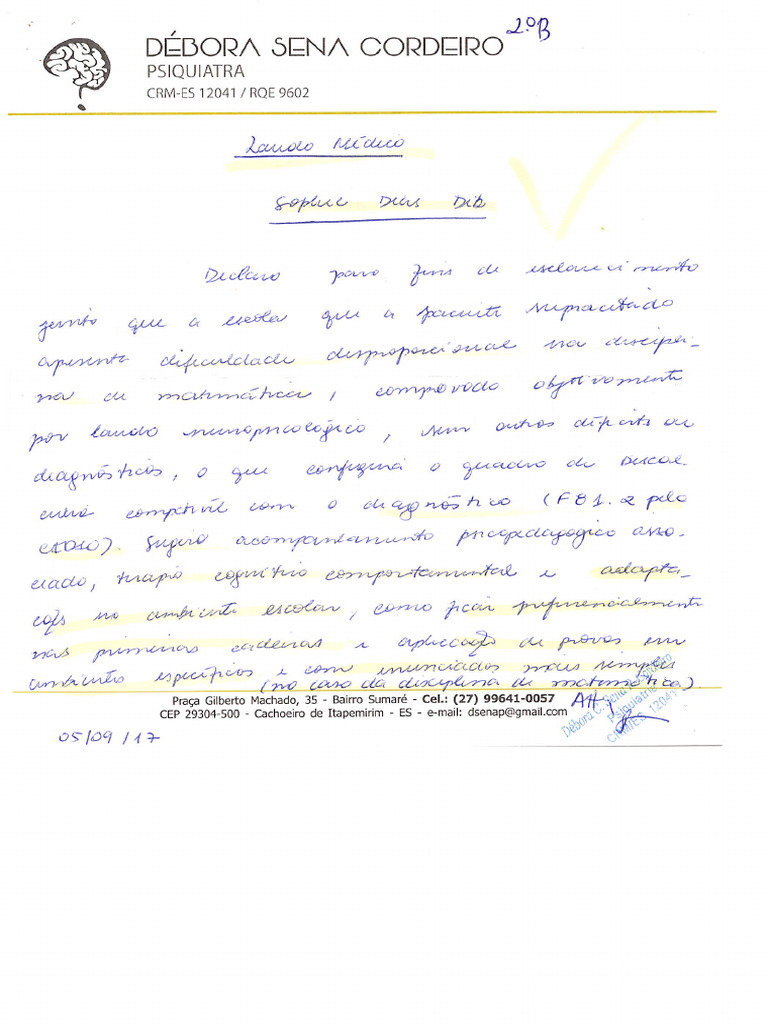 2.ºB
DÉBORA SENA CORDEIRO
PSIQUIATRA
CRM-ES 12041 / RQE 9602
Laudo Médico
Sophie Dias Dib
Declaro para fins de esclarecimento
junto que a escola que a paciente supracitado
apresenta dificuldade desproporcional na discipli-
na de matemática, comprovado objetivamente
por laudo neuropsicológico, sem outros déficits ou
diagnósticos, o que configura o quadro de Discal-
culia compatível com o diagnóstico (F81.2 pelo
CID10). Sugiro acompanhamento psicopedagógico asso-
ciado, terapia cognitivo comportamental e adapta-
ções no ambiente escolar, como ficar preferencialmente
nas primeiras cadeiras e aplicação de provas em
ambiente específicos e com enunciados mais simples
(no caso da disciplina de matemática).
Praça Gilberto Machado, 35 - Bairro Sumaré - Cel.: (27) 99641-0057
CEP 29304-500 - Cachoeiro de Itapemirim - ES - e-mail: dsenap@gmail.com
Débora C. Sena Cordeiro
Psiquiatria
CRM/ES 12041
05/09/17